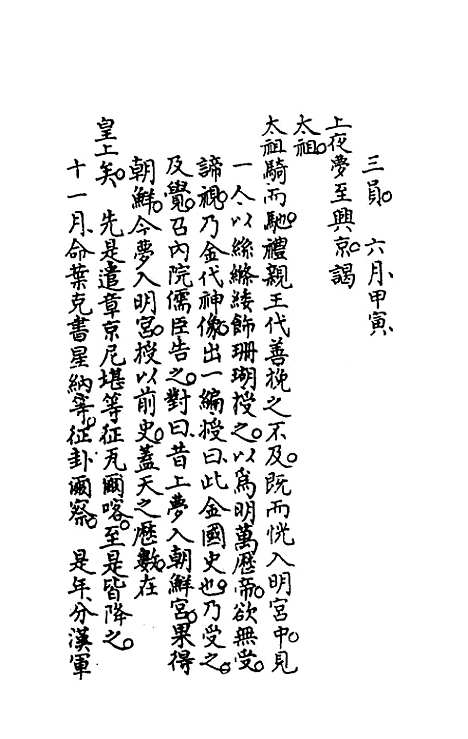 三員。六月、甲寅、
上夜夢至興京。謁
太祖。
太祖騎而馳。禮親王代善挽之不及。既而恍入明宮中。見
一人以絲縧綾飾珊瑚授之。以爲明萬歷帝。欲無受。
諦視。乃金代神像。出一編授曰、此金國史也。乃受之。
及覺。召內院儒臣告之。對曰、昔上夢入朝鮮宮。果得
朝鮮。今夢入明宮。授以前史。蓋天之歷數。在
皇上矣。先是遣章京尼堪等征瓦爾喀。至是皆降之。
十一月、命葉克書星納等。征卦爾察。是年、分漢軍